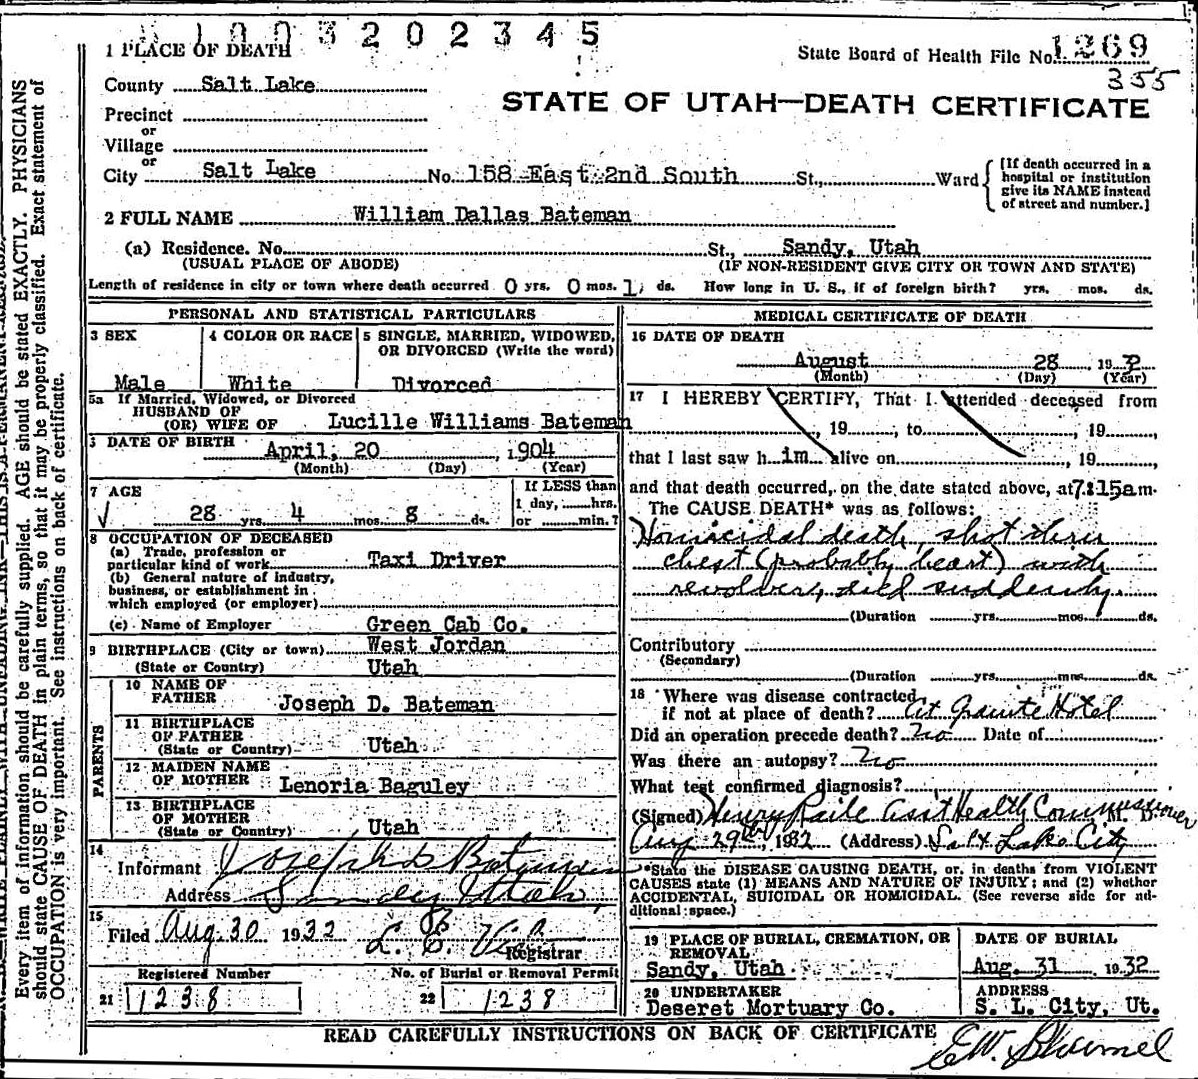 1003202345
1 PLACE OF DEATH
State Board of Health File No. 1269
355
County Salt Lake
STATE OF UTAH—DEATH CERTIFICATE
Precinct
or
Village
or
City Salt Lake No. 158 East 2nd South St., Ward
[If death occurred in a
hospital or institution
give its NAME instead
of street and number.]
2 FULL NAME William Dallas Bateman
(a) Residence. No. St., Sandy, Utah
(USUAL PLACE OF ABODE) (IF NON-RESIDENT GIVE CITY OR TOWN AND STATE)
Length of residence in city or town where death occurred 0 yrs. 0 mos. 1 ds. How long in U. S., if of foreign birth? yrs. mos. ds.
PERSONAL AND STATISTICAL PARTICULARS
3 SEX
Male
4 COLOR OR RACE
White
5 SINGLE, MARRIED, WIDOWED,
OR DIVORCED (Write the word)
Divorced
5a If Married, Widowed, or Divorced
HUSBAND OF
(OR) WIFE OF Lucille Williams Bateman
DATE OF BIRTH April, 20, 1904
(Month) (Day) (Year)
7 AGE
28 yrs. 4 mos. 8 ds.
If LESS than
1 day, hrs.
or min.?
8 OCCUPATION OF DECEASED
(a) Trade, profession or
particular kind of work Taxi Driver
(b) General nature of industry,
business, or establishment in
which employed (or employer)
(c) Name of Employer Green Cab Co.
9 BIRTHPLACE (City or town) West Jordan
(State or Country) Utah
PARENTS
10 NAME OF
FATHER Joseph D. Bateman
11 BIRTHPLACE
OF FATHER
(State or Country) Utah
12 MAIDEN NAME
OF MOTHER Lenoria Baguley
13 BIRTHPLACE
OF MOTHER
(State or Country) Utah
14
Informant Joseph D Bateman
Address Sandy Utah,
15
Filed Aug. 30 1932
Registrar
Registered Number
21 1238
No. of Burial or Removal Permit
22 1238
MEDICAL CERTIFICATE OF DEATH
16 DATE OF DEATH
August 28 1932
(Month) (Day) (Year)
17 I HEREBY CERTIFY, That I attended deceased from
, 19 , to , 19 ,
that I last saw him alive on , 19 ,
and that death occurred, on the date stated above, at 7:15am.
The CAUSE DEATH* was as follows:
Homicidal death, shot thru
chest (probably heart) with
revolver, died suddenly.
(Duration yrs. mos. ds.
Contributory
(Secondary)
(Duration yrs. mos. ds.
18 Where was disease contracted
if not at place of death? At Granite Hotel
Did an operation precede death? no Date of
Was there an autopsy? No
What test confirmed diagnosis?
(Signed) Henry Raile Asst Health Commissioner M. D.
Aug 29th, 1932 (Address) Salt Lake City
*State the DISEASE CAUSING DEATH, or, in deaths from VIOLENT
CAUSES state (1) MEANS AND NATURE OF INJURY; and (2) whether
ACCIDENTAL, SUICIDAL OR HOMICIDAL. (See reverse side for ad-
ditional space.)
19 PLACE OF BURIAL, CREMATION, OR
REMOVAL
Sandy, Utah
DATE OF BURIAL
Aug. 31 1932
20 UNDERTAKER
Deseret Mortuary Co.
ADDRESS
S. L. City, Ut.
READ CAREFULLY INSTRUCTIONS ON BACK OF CERTIFICATE
Every item of information should be carefully supplied. AGE should be stated EXACTLY. PHYSICIANS
should state CAUSE OF DEATH in plain terms, so that it may be properly classified. Exact statement of
OCCUPATION is very important. See instructions on back of certificate.